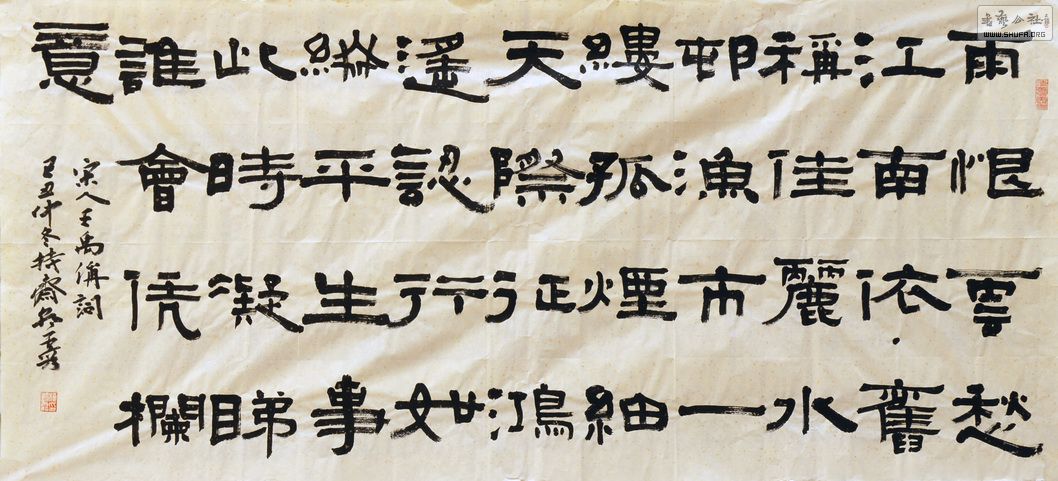 雨恨雲愁
江南依舊
稱佳麗水
邨漁市一
縷孤煙細
天際征鴻
遙認行如
綴平生事
此時凝睇
誰會凭欄
意
宋人王禹偁詞
己丑仲冬持齋
书艺公社
WWW.SHUFA.ORG